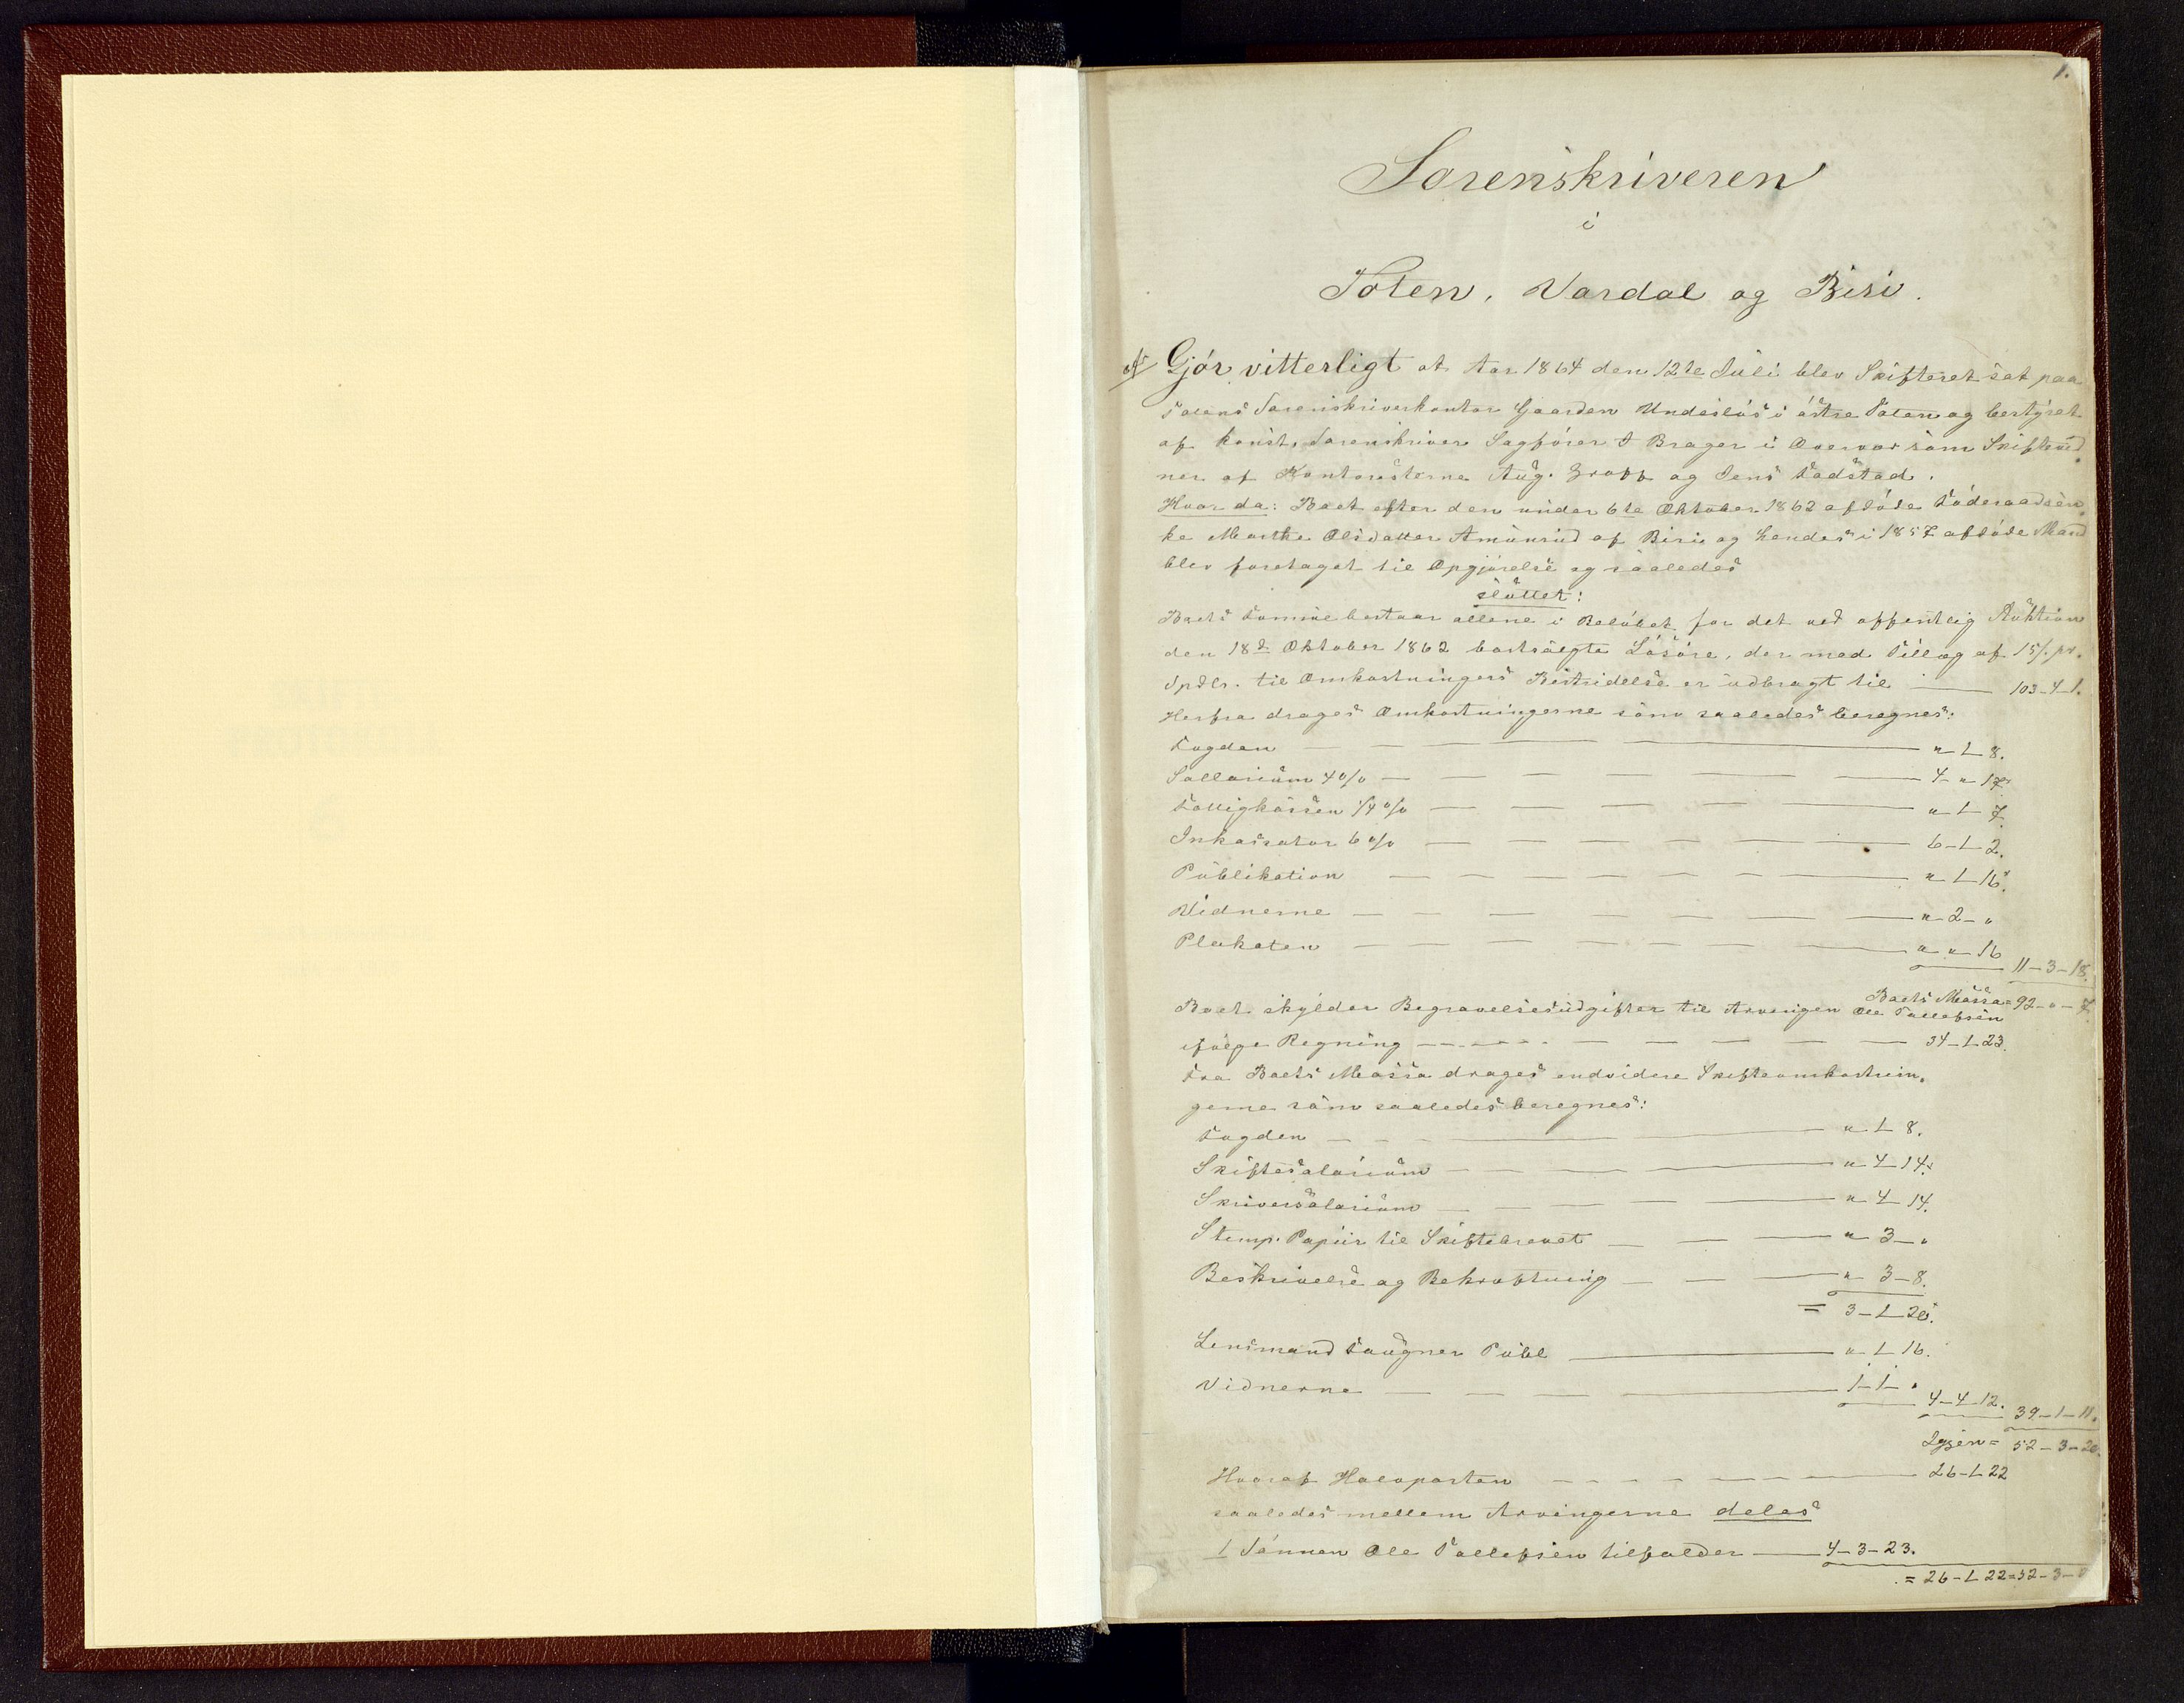 1.
Sorenskriveren
i
Toten, Vardal og Biri.
Gjør vitterligt at Aar 1864 den 12te Juli blev Skifteret sat paa
Totens Sorenskriverkontor Gaarden Undeslös i östre Toten og bestyret
af konst. Sorenskriver Sagförer A Brager i Overvær som Skiftevid
ner af Kontoristerne Aug. og Jens Fadstad.
Hvor da: Boet efter den under 6te Oktober 1862 afdöde Föderaadsen
ke Marthe Olsdatter Amünrud af Biri og hendes i 1857 afdöde Mand
blev foretaget til Opgjörelse og saaledes
sluttet:
Boets Formue bestaar allene i Belöbet for det ved offentlig Auktion
den 18d Oktober 1862 bortsolgte Lösöre, der med Tillæg af 15 /. pr.
Spdlr. til Omkostningers Bestridelse er udbragt til — 103-4-1.
Herfra drages Omkostningerne som saaledes beregnes:
Fogden — " 1 8.
Sallarium 4% — 4 " 17
Fattigkassen 1/4 % — " 1 7.
Inkassator 6 % — 6-1 2.
Publikation — " 1 16.
Vidnerne — " 2 - "
Plakaten — " " 16
11-3-18.
Boets Massa = 92-"-7.
Boet skylder Begravelsesudgifter til Arvingen Ole Tollefsen
ifölge Regning — 34-1-23.
Fra Boets Massa drages endvidere Skifteomkostnin
gerne som saaledes beregnes:
Fogden — " 1 8.
Skiftesalarium — " 4 14.
Skriversalarium — " 4 14.
Stemp. Papiir til Skiftebrevet — " 3 - "
Beskrivelse og Bekræftning — " 3-8.
= 3-1 20.
Lensmand Publ — " 1 16.
Vidnerne — 1-1- "
4-4-12. 39-1-11.
Igjen = 52-3-20.
Hvoraf Halvparten — 26-1-22
saaledes mellem Arvingerne deles
1 Sönnen Ole Tollefsen tilfalder — 4-3-23.
= 26-1 22=52-3-